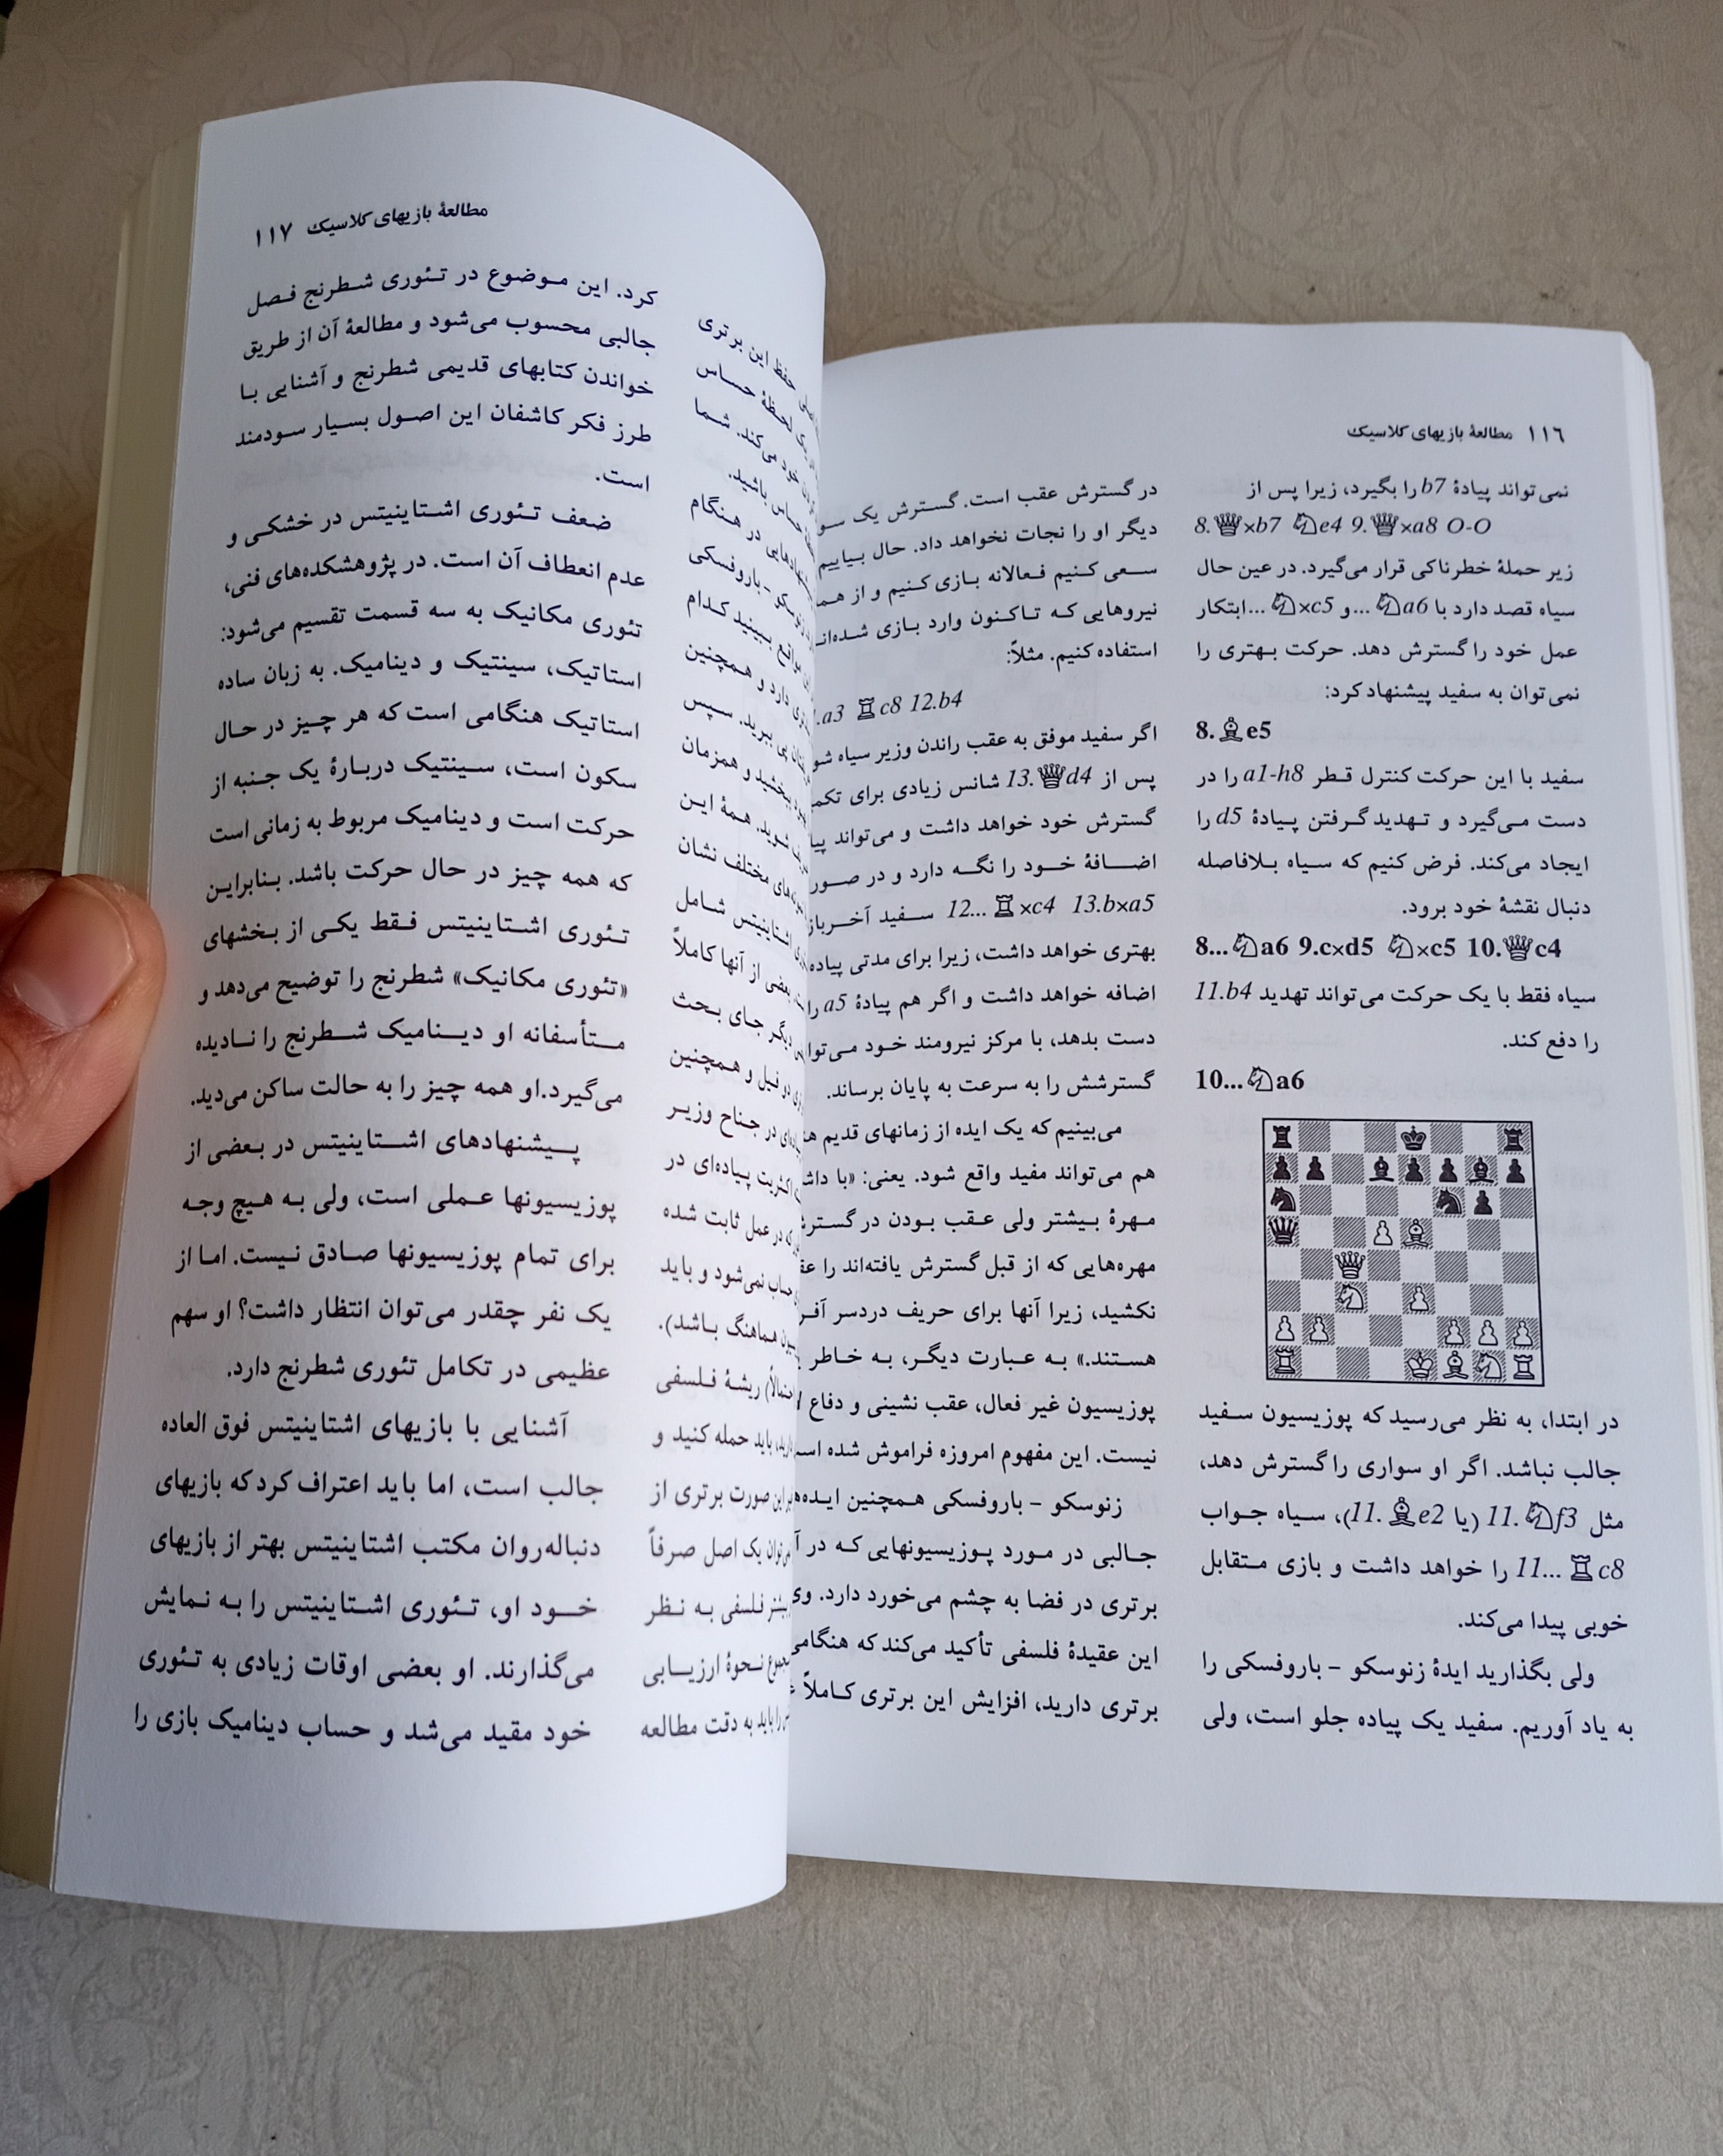 ۱۱۶ مطالعهٔ بازیهای کلاسیک
نمی‌تواند پیادهٔ b7 را بگیرد، زیرا پس از
8.♕×b7 ♘e4 9.♕×a8 O-O
زیر حملهٔ خطرناکی قرار می‌گیرد. در عین حال
سیاه قصد دارد با ♘a6... و ♘×c5... ابتکار
عمل خود را گسترش دهد. حرکت بهتری را
نمی‌توان به سفید پیشنهاد کرد:
8.♗e5
سفید با این حرکت کنترل قطر a1-h8 را در
دست می‌گیرد و تهدید گرفتن پیادهٔ d5 را
ایجاد می‌کند. فرض کنیم که سیاه بلافاصله
دنبال نقشهٔ خود برود.
8...♘a6 9.c×d5 ♘×c5 10.♕c4
سیاه فقط با یک حرکت می‌تواند تهدید 11.b4
را دفع کند.
10...♘a6
در ابتدا، به نظر می‌رسید که پوزیسیون سفید
جالب نباشد. اگر او سواری را گسترش دهد،
مثل 11.♘f3 (یا 11.♗e2)، سیاه جواب
11...♖c8 را خواهد داشت و بازی متقابل
خوبی پیدا می‌کند.
ولی بگذارید ایدهٔ زنوسکو - باروفسکی را
به یاد آوریم. سفید یک پیاده جلو است، ولی
در گسترش عقب است. گسترش یک
دیگر او را نجات نخواهد داد. حال بیاییم
سعی کنیم فعالانه بازی کنیم و از
نیروهایی که تاکنون وارد بازی
استفاده کنیم. مثلاً:
.a3 ♖c8 12.b4
اگر سفید موفق به عقب راندن وزیر سیاه
پس از 13.♕d4 شانس زیادی برای
گسترش خود خواهد داشت و می‌تواند
اضافهٔ خود را نگه دارد و در
12...♖×c4 13.b×a5 سفید
بهتری خواهد داشت، زیرا برای مدتی پیاده
اضافه خواهد داشت و اگر هم پیادهٔ a5 را
دست بدهد، با مرکز نیرومند خود
گسترشش را به سرعت به پایان برساند.
می‌بینیم که یک ایده از زمانهای قدیم
هم می‌تواند مفید واقع شود. یعنی: «با
مهرهٔ بیشتر ولی عقب بودن در
مهره‌هایی که از قبل گسترش یافته‌اند را
نکشید، زیرا آنها برای حریف دردسر
هستند.» به عبارت دیگر، به خاطر
پوزیسیون غیر فعال، عقب نشینی و دفاع
نیست. این مفهوم امروزه فراموش شده
زنوسکو - باروفسکی همچنین
جالبی در مورد پوزیسیونهایی که در
برتری در فضا به چشم می‌خورد دارد.
این عقیدهٔ فلسفی تأکید می‌کند که
برتری دارید، افزایش این برتری کاملاً
مطالعهٔ بازیهای کلاسیک ۱۱۷
حفظ این برتری
لحظهٔ حساس
خود می‌کند. شما
حساس باشید.
در هنگام
باروفسکی
ببینید کدام
دارد و همچنین
پی ببرید. سپس
ببخشید و همزمان
شوید. همهٔ این
مختلف نشان
اشتاینیتس شامل
بعضی از آنها کاملاً
دیگر جای بحث
دو فیل و همچنین
در جناح وزیر
اکثریت پیاده‌ای در
که در عمل ثابت شده
حساب نمی‌شود و باید
هماهنگ باشد).
ریشهٔ فلسفی
باید حمله کنید و
صورت برتری از
یک اصل صرفاً
فلسفی به نظر
نحوهٔ ارزیابی
را باید به دقت مطالعه
کرد. این موضوع در تئوری شطرنج فصل
جالبی محسوب می‌شود و مطالعهٔ آن از طریق
خواندن کتابهای قدیمی شطرنج و آشنایی با
طرز فکر کاشفان این اصول بسیار سودمند
است.
ضعف تئوری اشتاینیتس در خشکی و
عدم انعطاف آن است. در پژوهشکده‌های فنی،
تئوری مکانیک به سه قسمت تقسیم می‌شود:
استاتیک، سینتیک و دینامیک. به زبان ساده
استاتیک هنگامی است که هر چیز در حال
سکون است، سینتیک دربارهٔ یک جنبه از
حرکت است و دینامیک مربوط به زمانی است
که همه چیز در حال حرکت باشد. بنابراین
تئوری اشتاینیتس فقط یکی از بخشهای
«تئوری مکانیک» شطرنج را توضیح می‌دهد و
متأسفانه او دینامیک شطرنج را نادیده
می‌گیرد.او همه چیز را به حالت ساکن می‌دید.
پیشنهادهای اشتاینیتس در بعضی از
پوزیسیونها عملی است، ولی به هیچ وجه
برای تمام پوزیسیونها صادق نیست. اما از
یک نفر چقدر می‌توان انتظار داشت؟ او سهم
عظیمی در تکامل تئوری شطرنج دارد.
آشنایی با بازیهای اشتاینیتس فوق العاده
جالب است، اما باید اعتراف کرد که بازیهای
دنباله‌روان مکتب اشتاینیتس بهتر از بازیهای
خود او، تئوری اشتاینیتس را به نمایش
می‌گذارند. او بعضی اوقات زیادی به تئوری
خود مقید می‌شد و حساب دینامیک بازی را